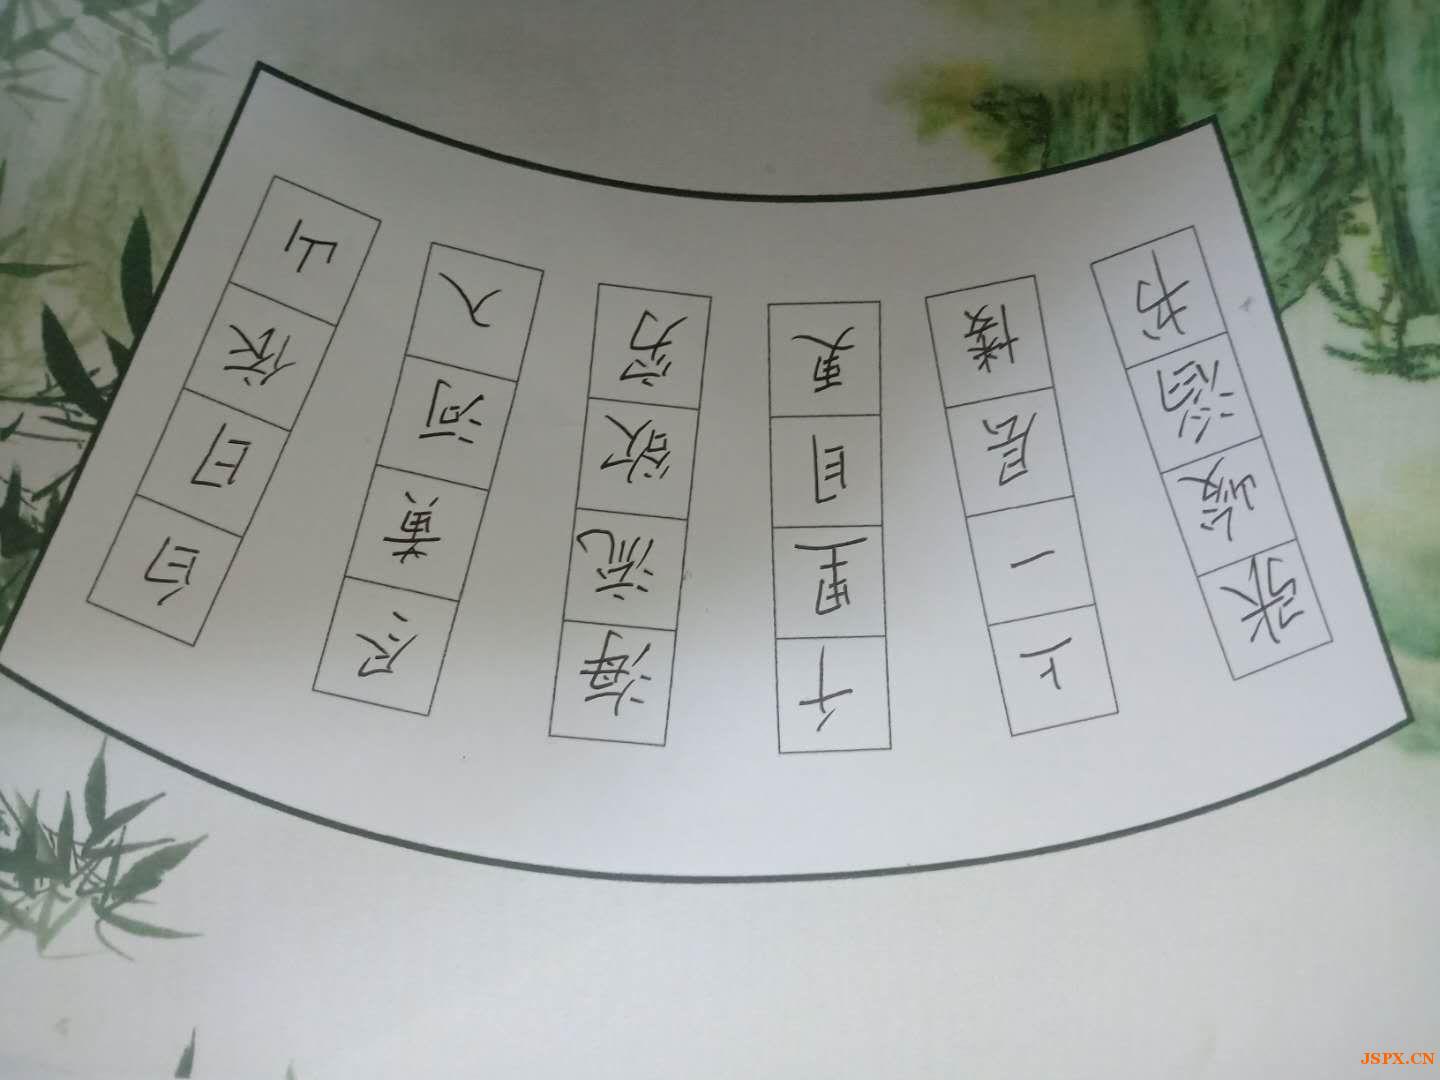 白日依山
尽黄河入
海流欲穷
千里目更
上一层楼
张峻书
JSPX.CN